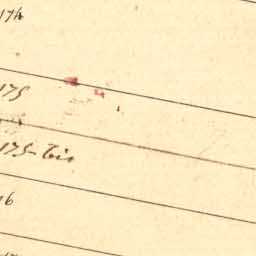 174
175
175 bis